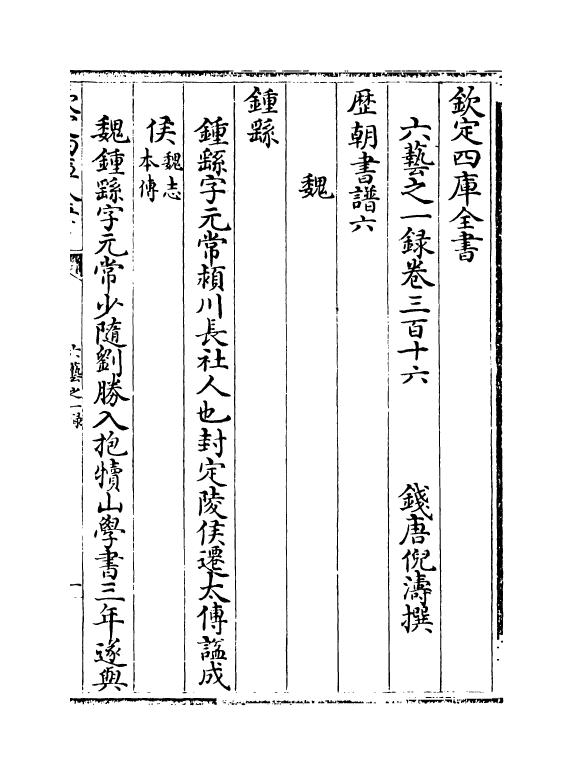 欽定四庫全書
六藝之一録卷三百十六
錢唐倪濤撰
歴朝書譜六
魏
鍾繇
鍾繇字元常潁川長社人也封定陵侯遷太傅諡成
侯魏志本傳
魏鍾繇字元常少隨劉勝入抱犢山學書三年遂與
六藝之一録
一